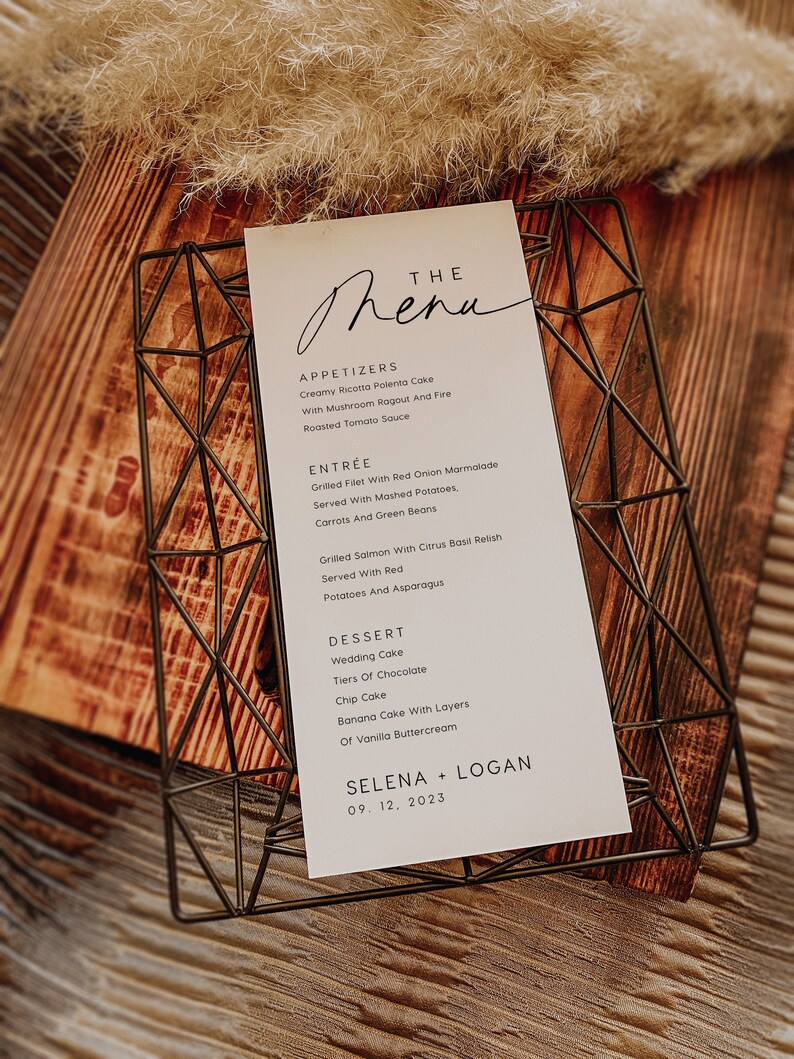 THE
Menu
APPETIZERS
Creamy Ricotta Polenta Cake
With Mushroom Ragout And Fire
Roasted Tomato Sauce
ENTRÉE
Grilled Filet With Red Onion Marmalade
Served With Mashed Potatoes,
Carrots And Green Beans
Grilled Salmon With Citrus Basil Relish
Served With Red
Potatoes And Asparagus
DESSERT
Wedding Cake
Tiers Of Chocolate
Chip Cake
Banana Cake With Layers
Of Vanilla Buttercream
SELENA + LOGAN
09. 12, 2023